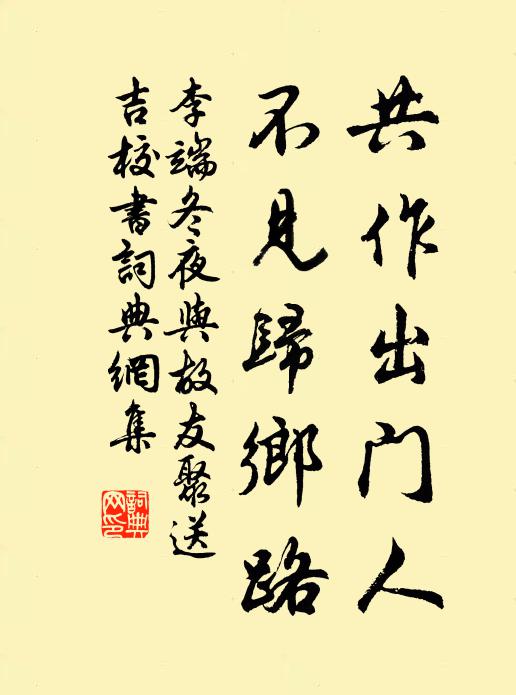 共作出門人
不見歸鄉路
李端冬夜與故友聚送
吉校書詞典網集
詞典網印